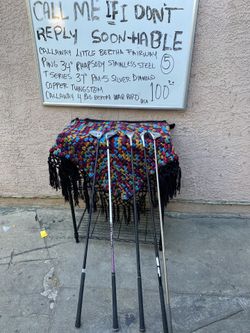 CALL ME IF I DON'T
REPLY SOON-HABLE
CALLAWAY LITTLE BERTHA FAIRWAY
PING 34" RHAPSODY STAINLESS STEEL 5
T SERIES 37" PM-5 SILVER DIAMOND
COPPER TUNGSTEM
CALLAWAY 4 BIG BERTHA WAR BIRD
100